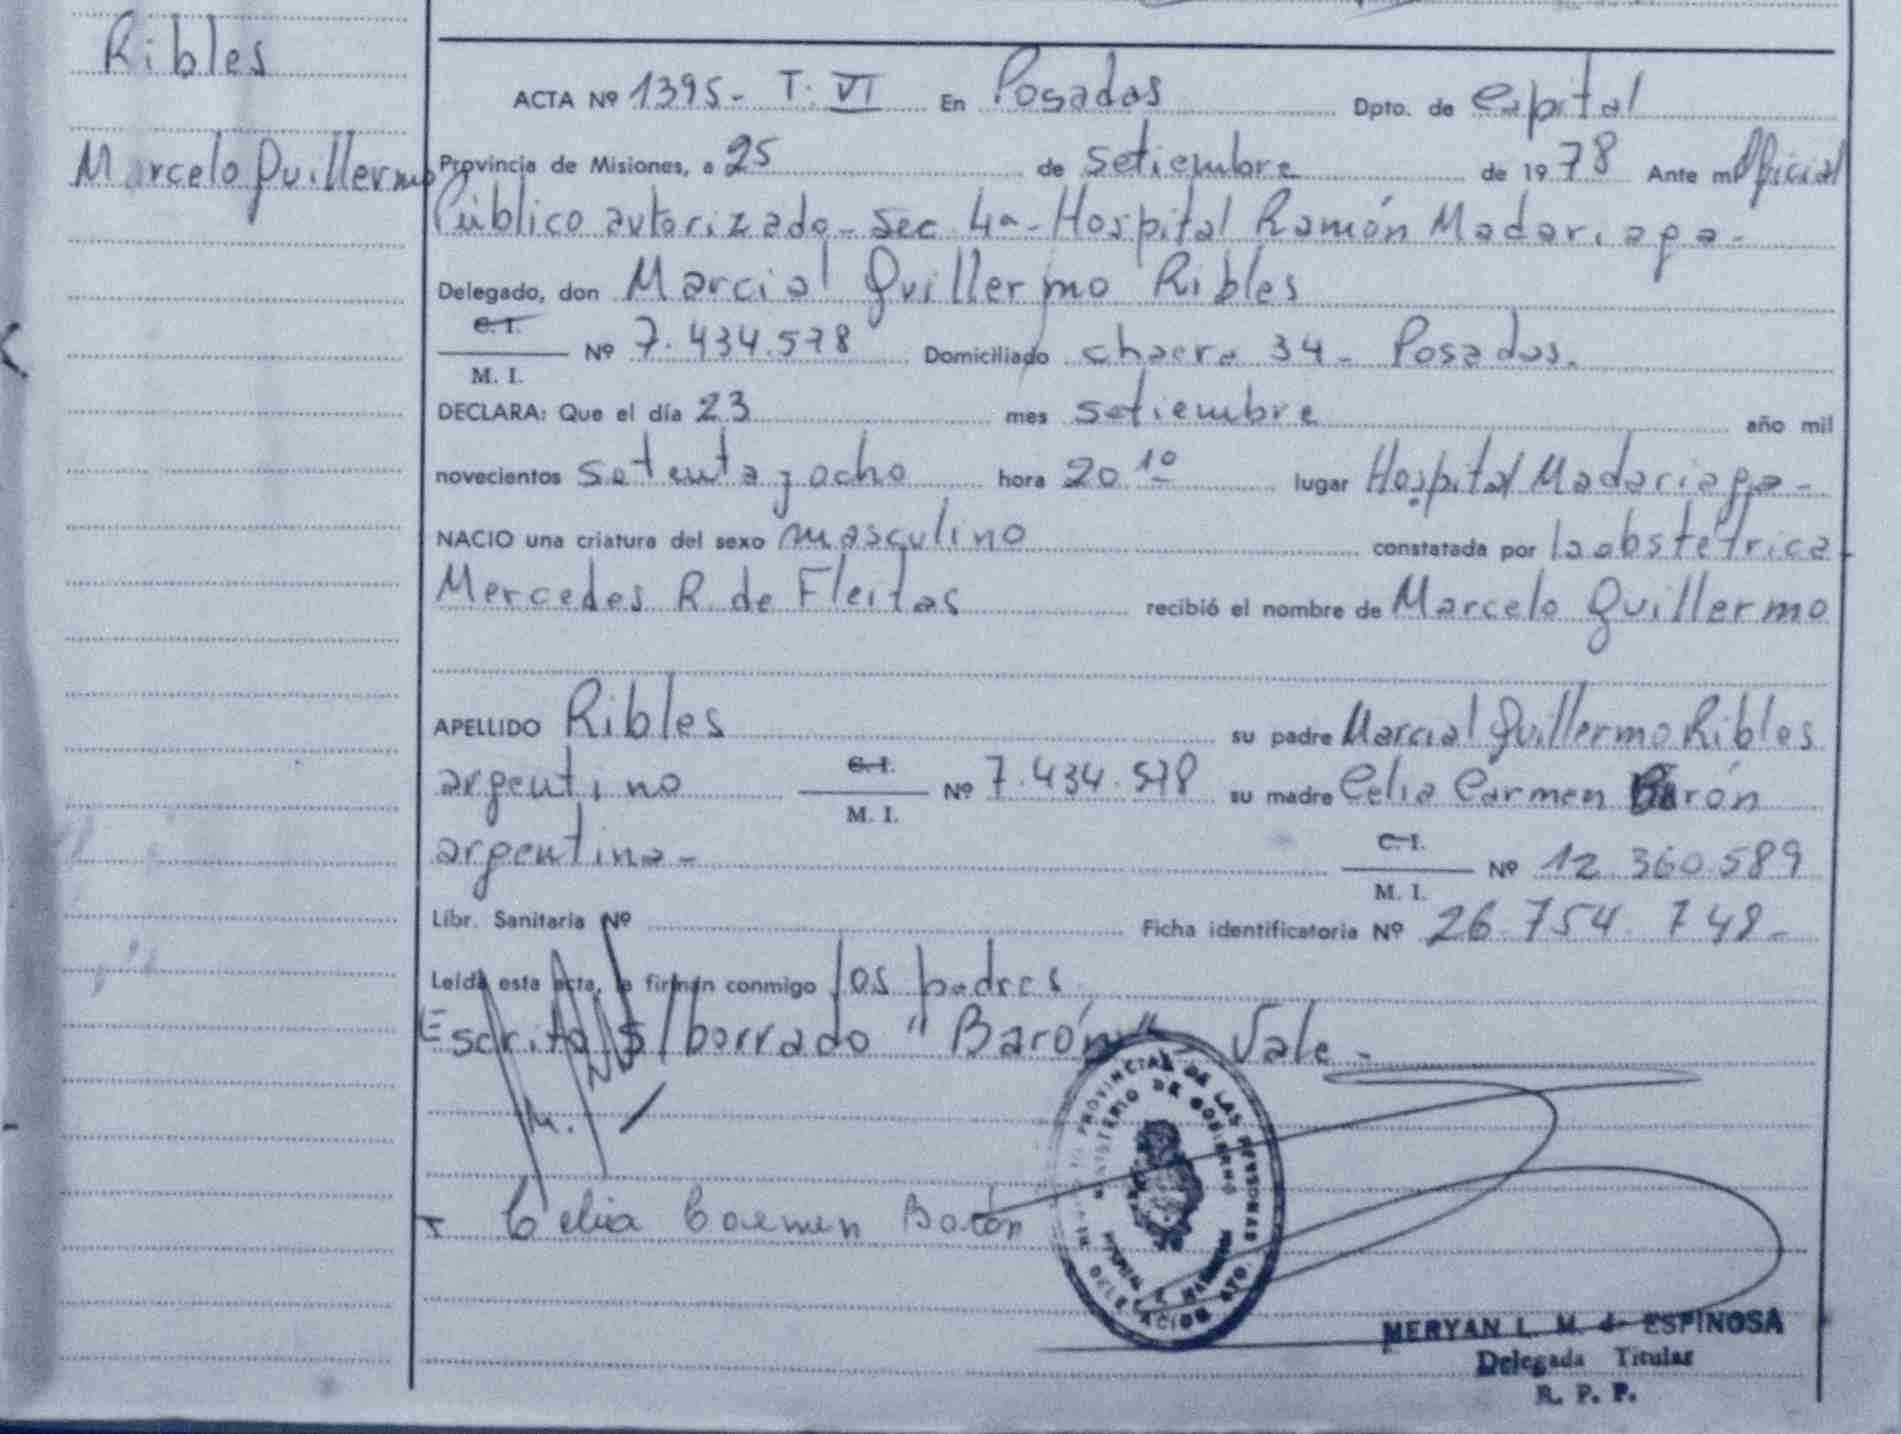 Ribles
Marcelo Guillermo
ACTA Nº 1395- T. VI En Posadas Dpto. de Capital
Provincia de Misiones, a 25 de setiembre de 1978 Ante mí Oficial
Público autorizado - Sec 4a - Hospital Ramón Madariaga -
Delegado, don Marcial Guillermo Ribles
C. I.
M. I. Nº 7.434.578 Domiciliado chacra 34 - Posadas.
DECLARA: Que el día 23 mes setiembre año mil
novecientos setenta y ocho hora 20 10 lugar Hospital Madariaga -
NACIO una criatura del sexo masculino constatada por la obstetrica
Mercedes R. de Fleitas recibió el nombre de Marcelo Guillermo
APELLIDO Ribles su padre Marcial Guillermo Ribles
argentino C. I. M. I. Nº 7.434.578 su madre Celia Carmen Barón
argentina - C. I. M. I. Nº 12 360.589
Libr. Sanitaria Nº Ficha identificatoria Nº 26.754.748 -
Leída esta acta, la firman conmigo los padres
Escrito s/borrado "Barón" - Vale -
Celia Carmen Barón
PROVINCIAL DE LAS PERSONAS
MINISTERIO DE GOBIERNO
DELEGACION
MERYAN L. M. de ESPINOSA
Delegada Titular
R. P. P.